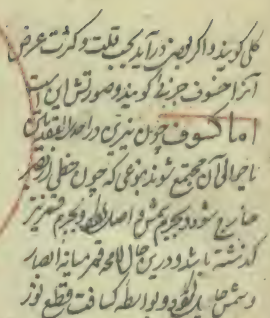 کلی گویند و اگر بعض درآید بحسب قلت و کثرت عرض
آنرا خسوف جزئی گویند و صورتش این است
اما کسوف چون نیرین در احدی العقدتین
یا حوالی آن مجتمع شوند بنوعی که چون خطی از بصر
خارج شود و بجرم شمس واصل و بجرم قمر نیز
گذشته باشد و درین حال لامحه قمر میانه ابصار
و شمس حایل بواسطه کثافت قطع نور